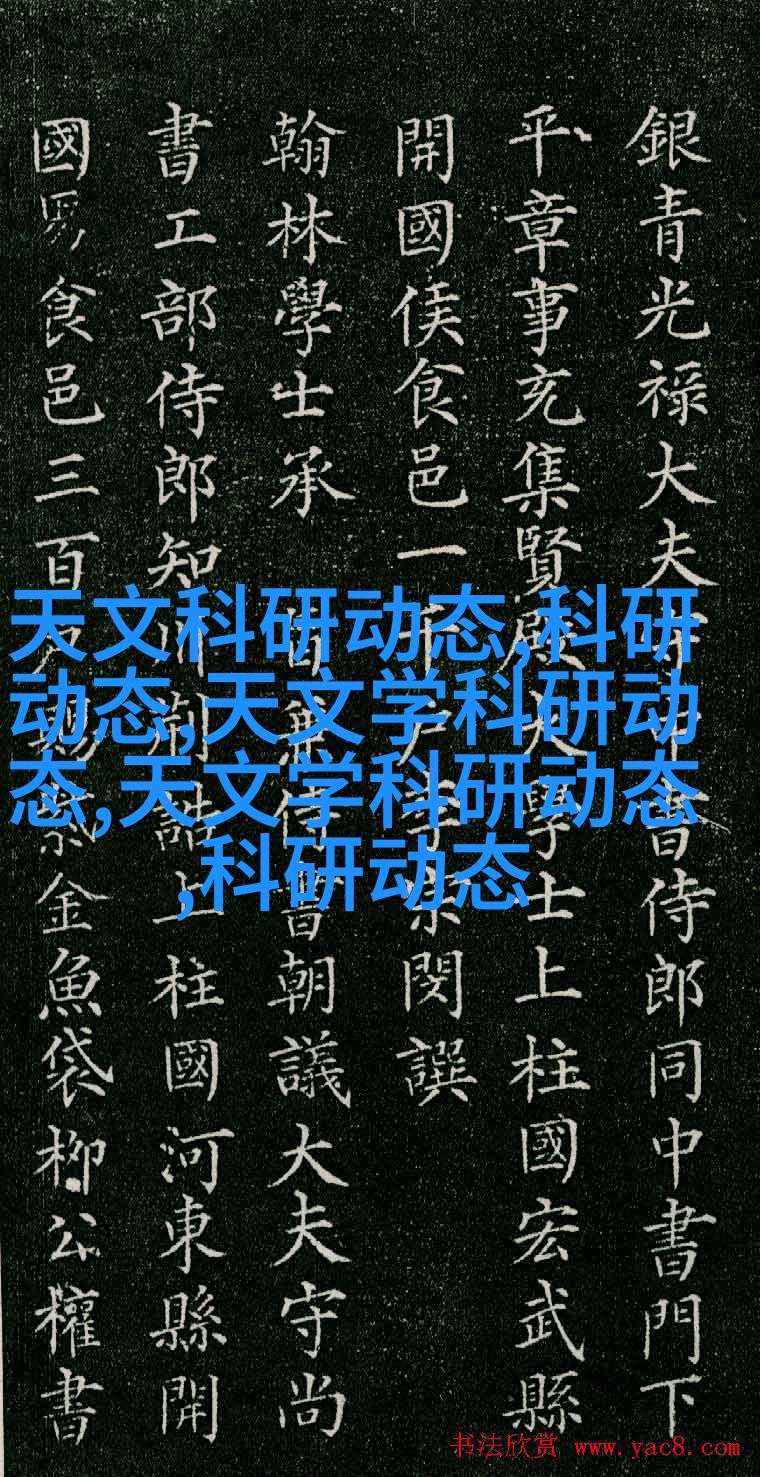 銀青光禄大夫書侍郎同中書門下
平章事充集賢殿大學士上柱國宏武縣
開國侯食邑一千戶李宗閔撰
翰林學士承旨兼侍書朝議大夫守尚
書工部侍郎知制誥上柱國河東縣開
國男食邑三百戶賜紫金魚袋柳公權書
天文科研动态,科研
动态,天文学科研动
态,天文学科研动态
,科研动态
书法欣赏 www.yac8.com